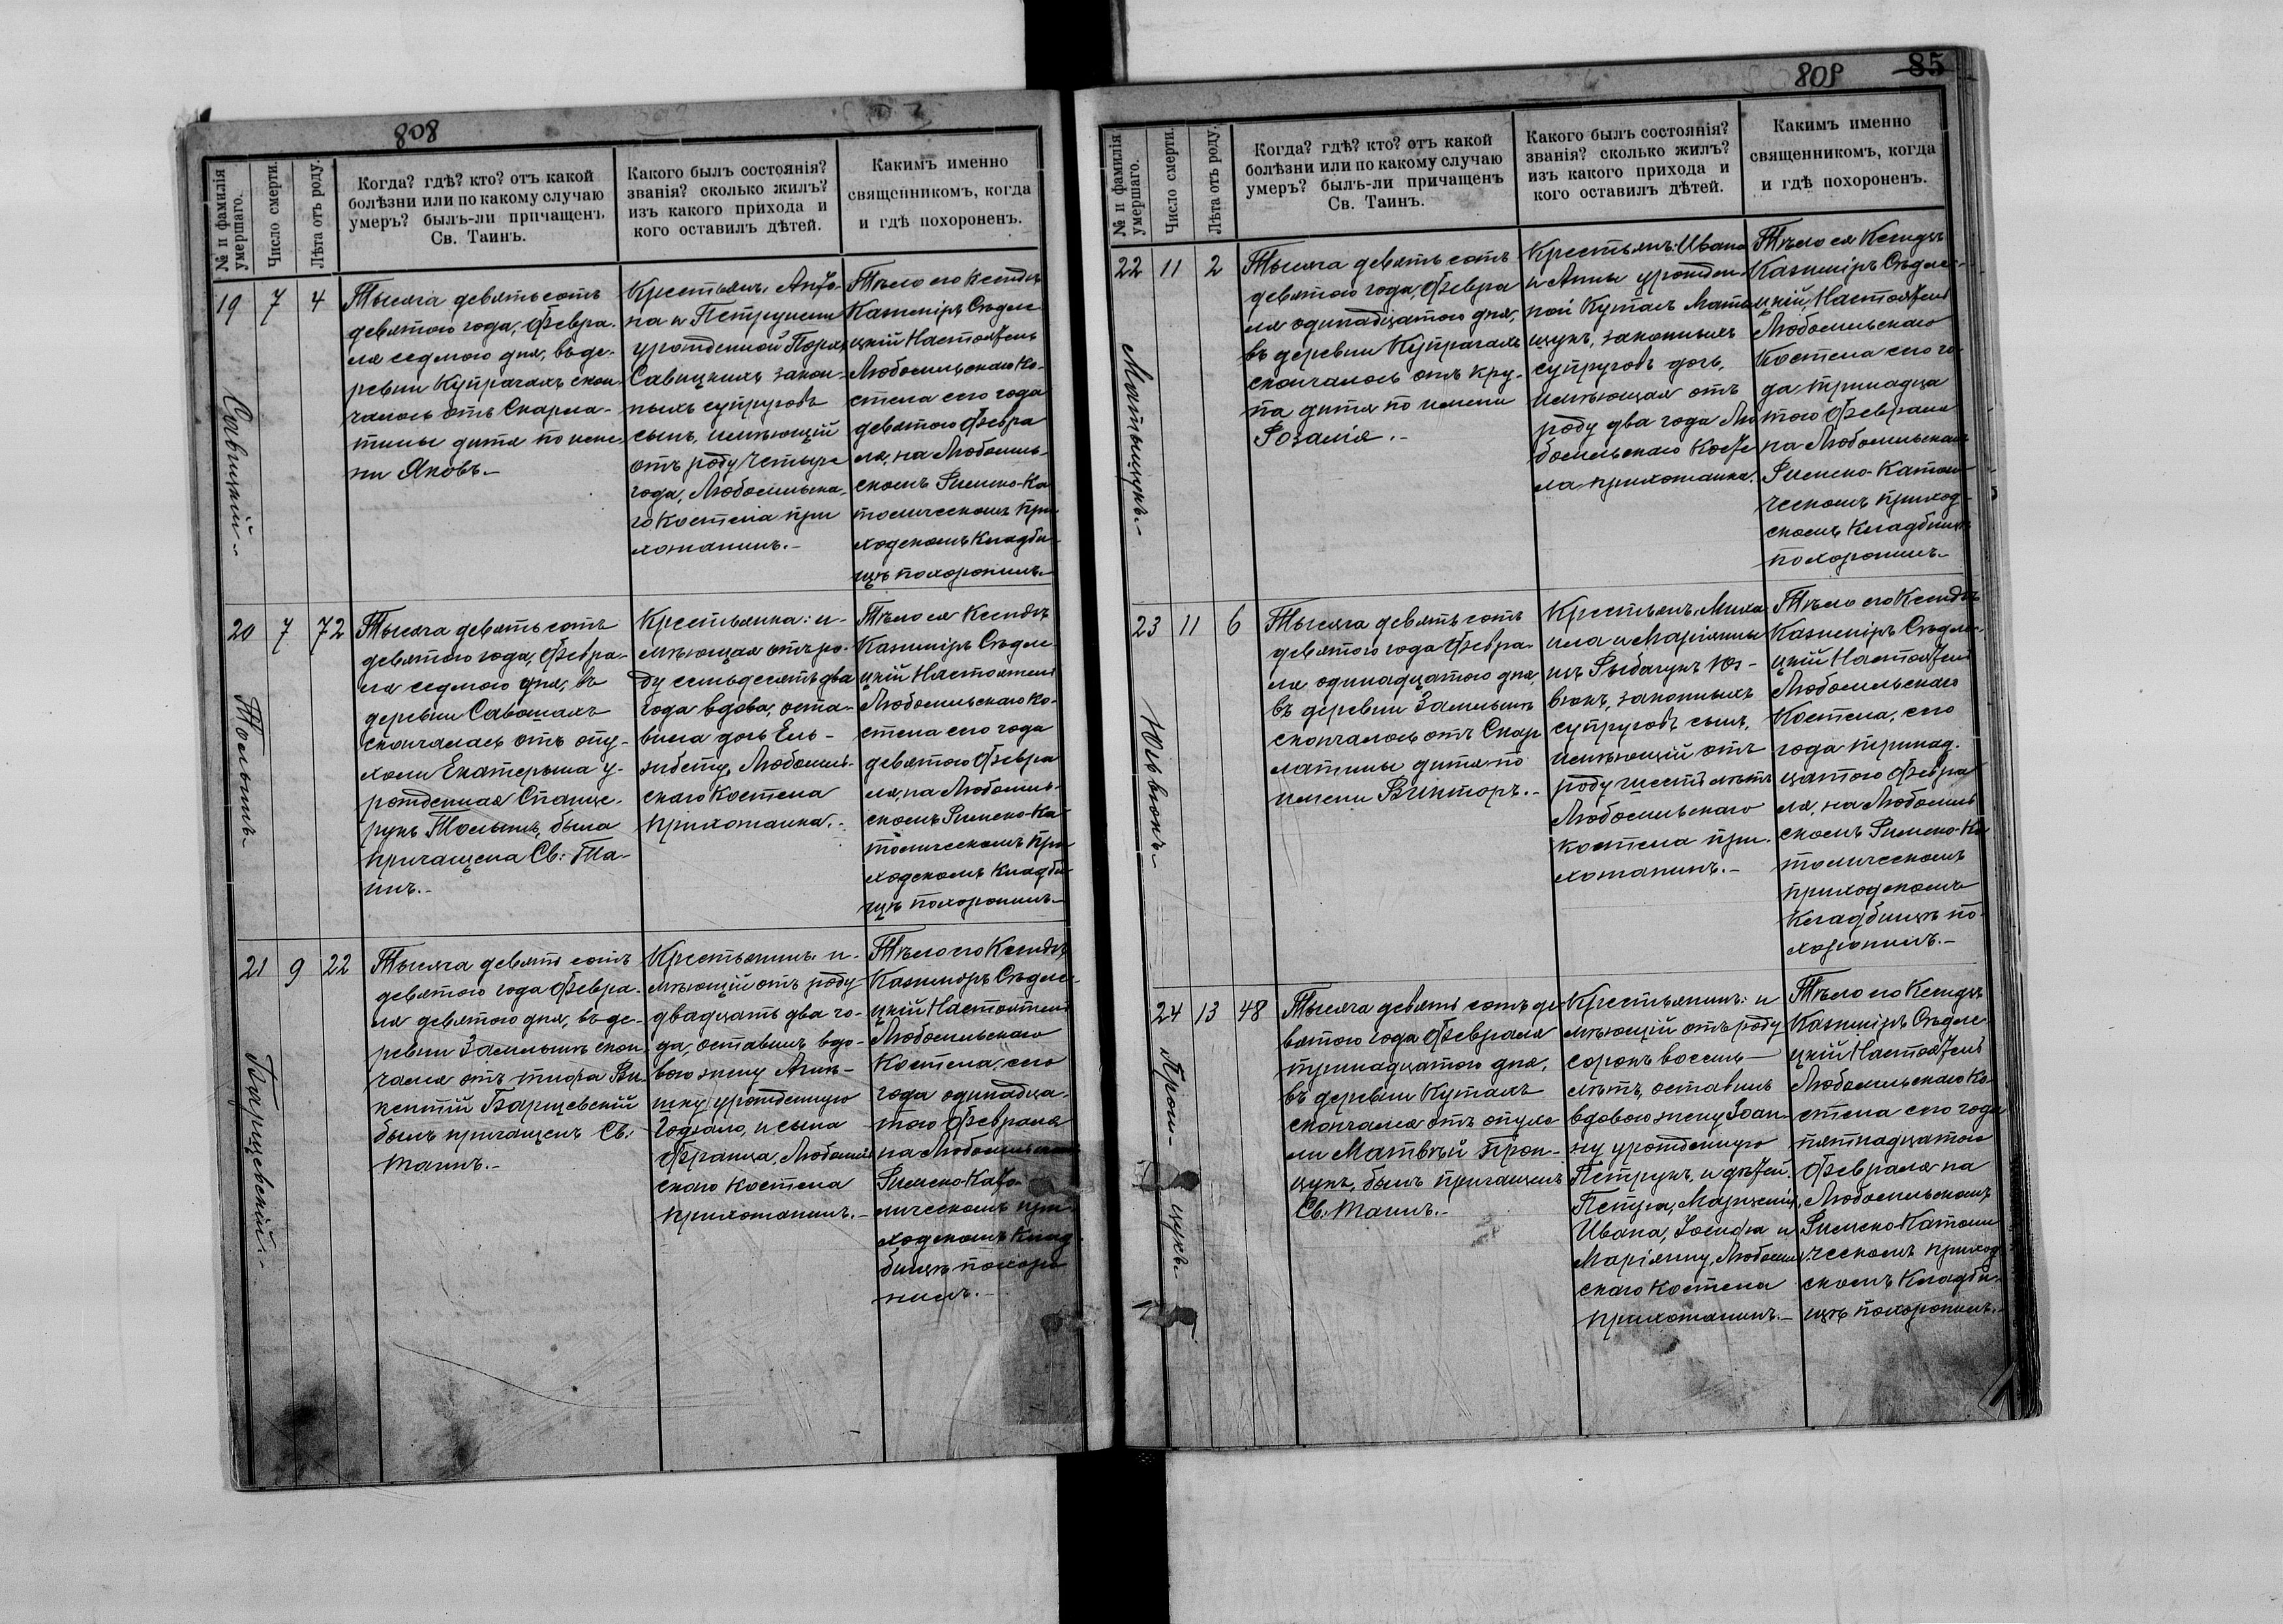 808
№ и фамилія
умершаго.
Число смерти.
Лѣта отъ роду.
Когда? гдѣ? кто? отъ какой
болѣзни или по какому случаю
умеръ? былъ-ли причащенъ
Св. Таинъ.
Какого былъ состоянія?
званія? сколько жилъ?
изъ какого прихода и
кого оставилъ дѣтей.
Какимъ именно
священникомъ, когда
и гдѣ похороненъ.
19
Савицкій
7
4
Тысяча девятьсотъ
девятого года, Февра-
ля седмого дня, въ де-
ревни Купрачахъ скон-
чалось отъ Скарла-
тины дитя по име-
ни Яковъ.-
Крестьянъ, Анто-
на и Петрунели
урожденной
Савицкихъ закон-
ныхъ супруговъ
сынъ, имѣющій
отъ роду четыре
года, Любомльска-
го Костела при
хожанинъ.-
Тѣло его Ксендзъ
Казимiръ Сѣдле
цкій Настоятель
Любомльскаго Ко-
стела сего года
девятого Февра
ля, на Любомль-
скомъ Римско-Ка
толическомъ При
ходскомъ Кладби-
щѣ похоронилъ.-
20
Толышъ
7
72
Тысяча девятьсотъ
девятого года, Февра-
ля седмого дня, въ
деревни Савошахъ
скончалась отъ опу-
холи Екатерына у-
рожденная
Толышъ, была
причащена Св: Та-
инъ.-
Крестьянка: и-
мѣющая отъ ро-
ду семьдесятъ два
года вдова, оста-
вила дочь Ель-
зибету, Любомль-
скаго Костела
прихожанка.-
Тѣло ея Ксендзъ
Казимiръ Сѣдле
цкій Настоятель
Любомльскаго Ко-
стела сего года
девятого Февра
ля, на Любомль-
скомъ Римско-Ка-
толическомъ При
ходскомъ Кладби-
щѣ похоронилъ.-
21
Барщевскій.-
9
22
Тысяча девять сотъ
девятого года Февра-
ля девятого дня, въ де-
ревни Замлынѣ скон-
чался отъ тифа Ви-
кентій Барщевскій
былъ причащенъ Св:
Таинъ.-
Крестьянинъ: и-
мѣющій отъ роду
двадцать два го-
да, оставилъ вдо-
вою жену
урожденную
и сына
Франца, Любомль
скаго Костела
прихожанинъ.-
Тѣло его Ксендзъ
Казимiръ Сѣдле-
цкій Настоятель
Любомльскаго
Костела, сего
года одинадца-
того Февраля
на Любомльскомъ
Римско-Като-
лическомъ при-
ходскомъ Клад-
бищѣ похоро
нилъ.-
809
85
№ и фамилія
умершаго.
Число смерти.
Лѣта отъ роду.
Когда? гдѣ? кто? отъ какой
болѣзни или по какому случаю
умеръ? былъ-ли причащенъ
Св. Таинъ.
Какого былъ состоянія?
званія? сколько жилъ?
изъ какого прихода и
кого оставилъ дѣтей.
Какимъ именно
священникомъ, когда
и гдѣ похороненъ.
22
Матыщукъ.-
11
2
Тысяча девять сотъ
девятого года, Февра
ля одинадцатого дня,
въ деревни Купрачахъ
скончалось отъ кру-
па дитя по имени
Розалія.-
Крестьянъ: Ивана
и Анны урожден-
ной Куташъ Маты
щукъ, законныхъ
супруговъ дочь,
имѣющая отъ
роду два года Лю
бомльскаго Косте
ла прихожанка.
Тѣло ея Ксендзъ
Казимiръ Сѣдле-
цкій, Настоятель
Любомльскаго
Костела сего го-
да тринадца
того Февраля
на Любомльскомъ
Римско-Католи
ческомъ приход-
скомъ Кладбищѣ
похоронилъ.-
23
Юзвюкъ.-
11
6
Тысяча девять сотъ
девятого года Февра-
ля одинадцатого дня,
въ деревни Замлынѣ
скончалось отъ Скар
латины дитя по
имени Викторъ.-
Крестьянъ, Миха
ила и Маріянны
изъ Рыбачукъ Юз-
вюкъ, законныхъ
супруговъ сынъ,
имѣющій отъ
роду шесть лѣтъ
Любомльскаго
костела при-
хожанинъ.-
Тѣло его Ксендзъ
Казимiръ Сѣдле-
цкій Настоятель
Любомльскаго
Костела, сего
года тринад-
цатого Февра
ля, на Любомль
скомъ Римско-Ка
толическомъ
приходскомъ
Кладбищѣ по-
хоронилъ.-
24
Прон-
щукъ.-
13
48
Тысяча девять сотъ де
вятого года Февраля
тринадцатого дня,
въ деревни Куташъ
скончался отъ опухо
ли Матвѣй Прон-
щукъ, былъ причащенъ
Св: Таинъ.-
Крестьянинъ: и
мѣющій отъ роду
сорокъ восемь
лѣтъ, оставилъ
вдовою жену Іоан-
ну урожденную
Петрукъ, и дѣтей:
Петра,
Ивана, Іосифа и
Маріянну, Любомль
скаго Костела
прихожанинъ.-
Тѣло его Ксендзъ
Казимiръ Сѣдле-
цкій Настоятель
Любомльскаго Ко-
стела сего года
пятнадцатого
Февраля на
Любомльскомъ
Римско-Католи
ческомъ приход
скомъ Кладби-
щѣ похоронилъ.-